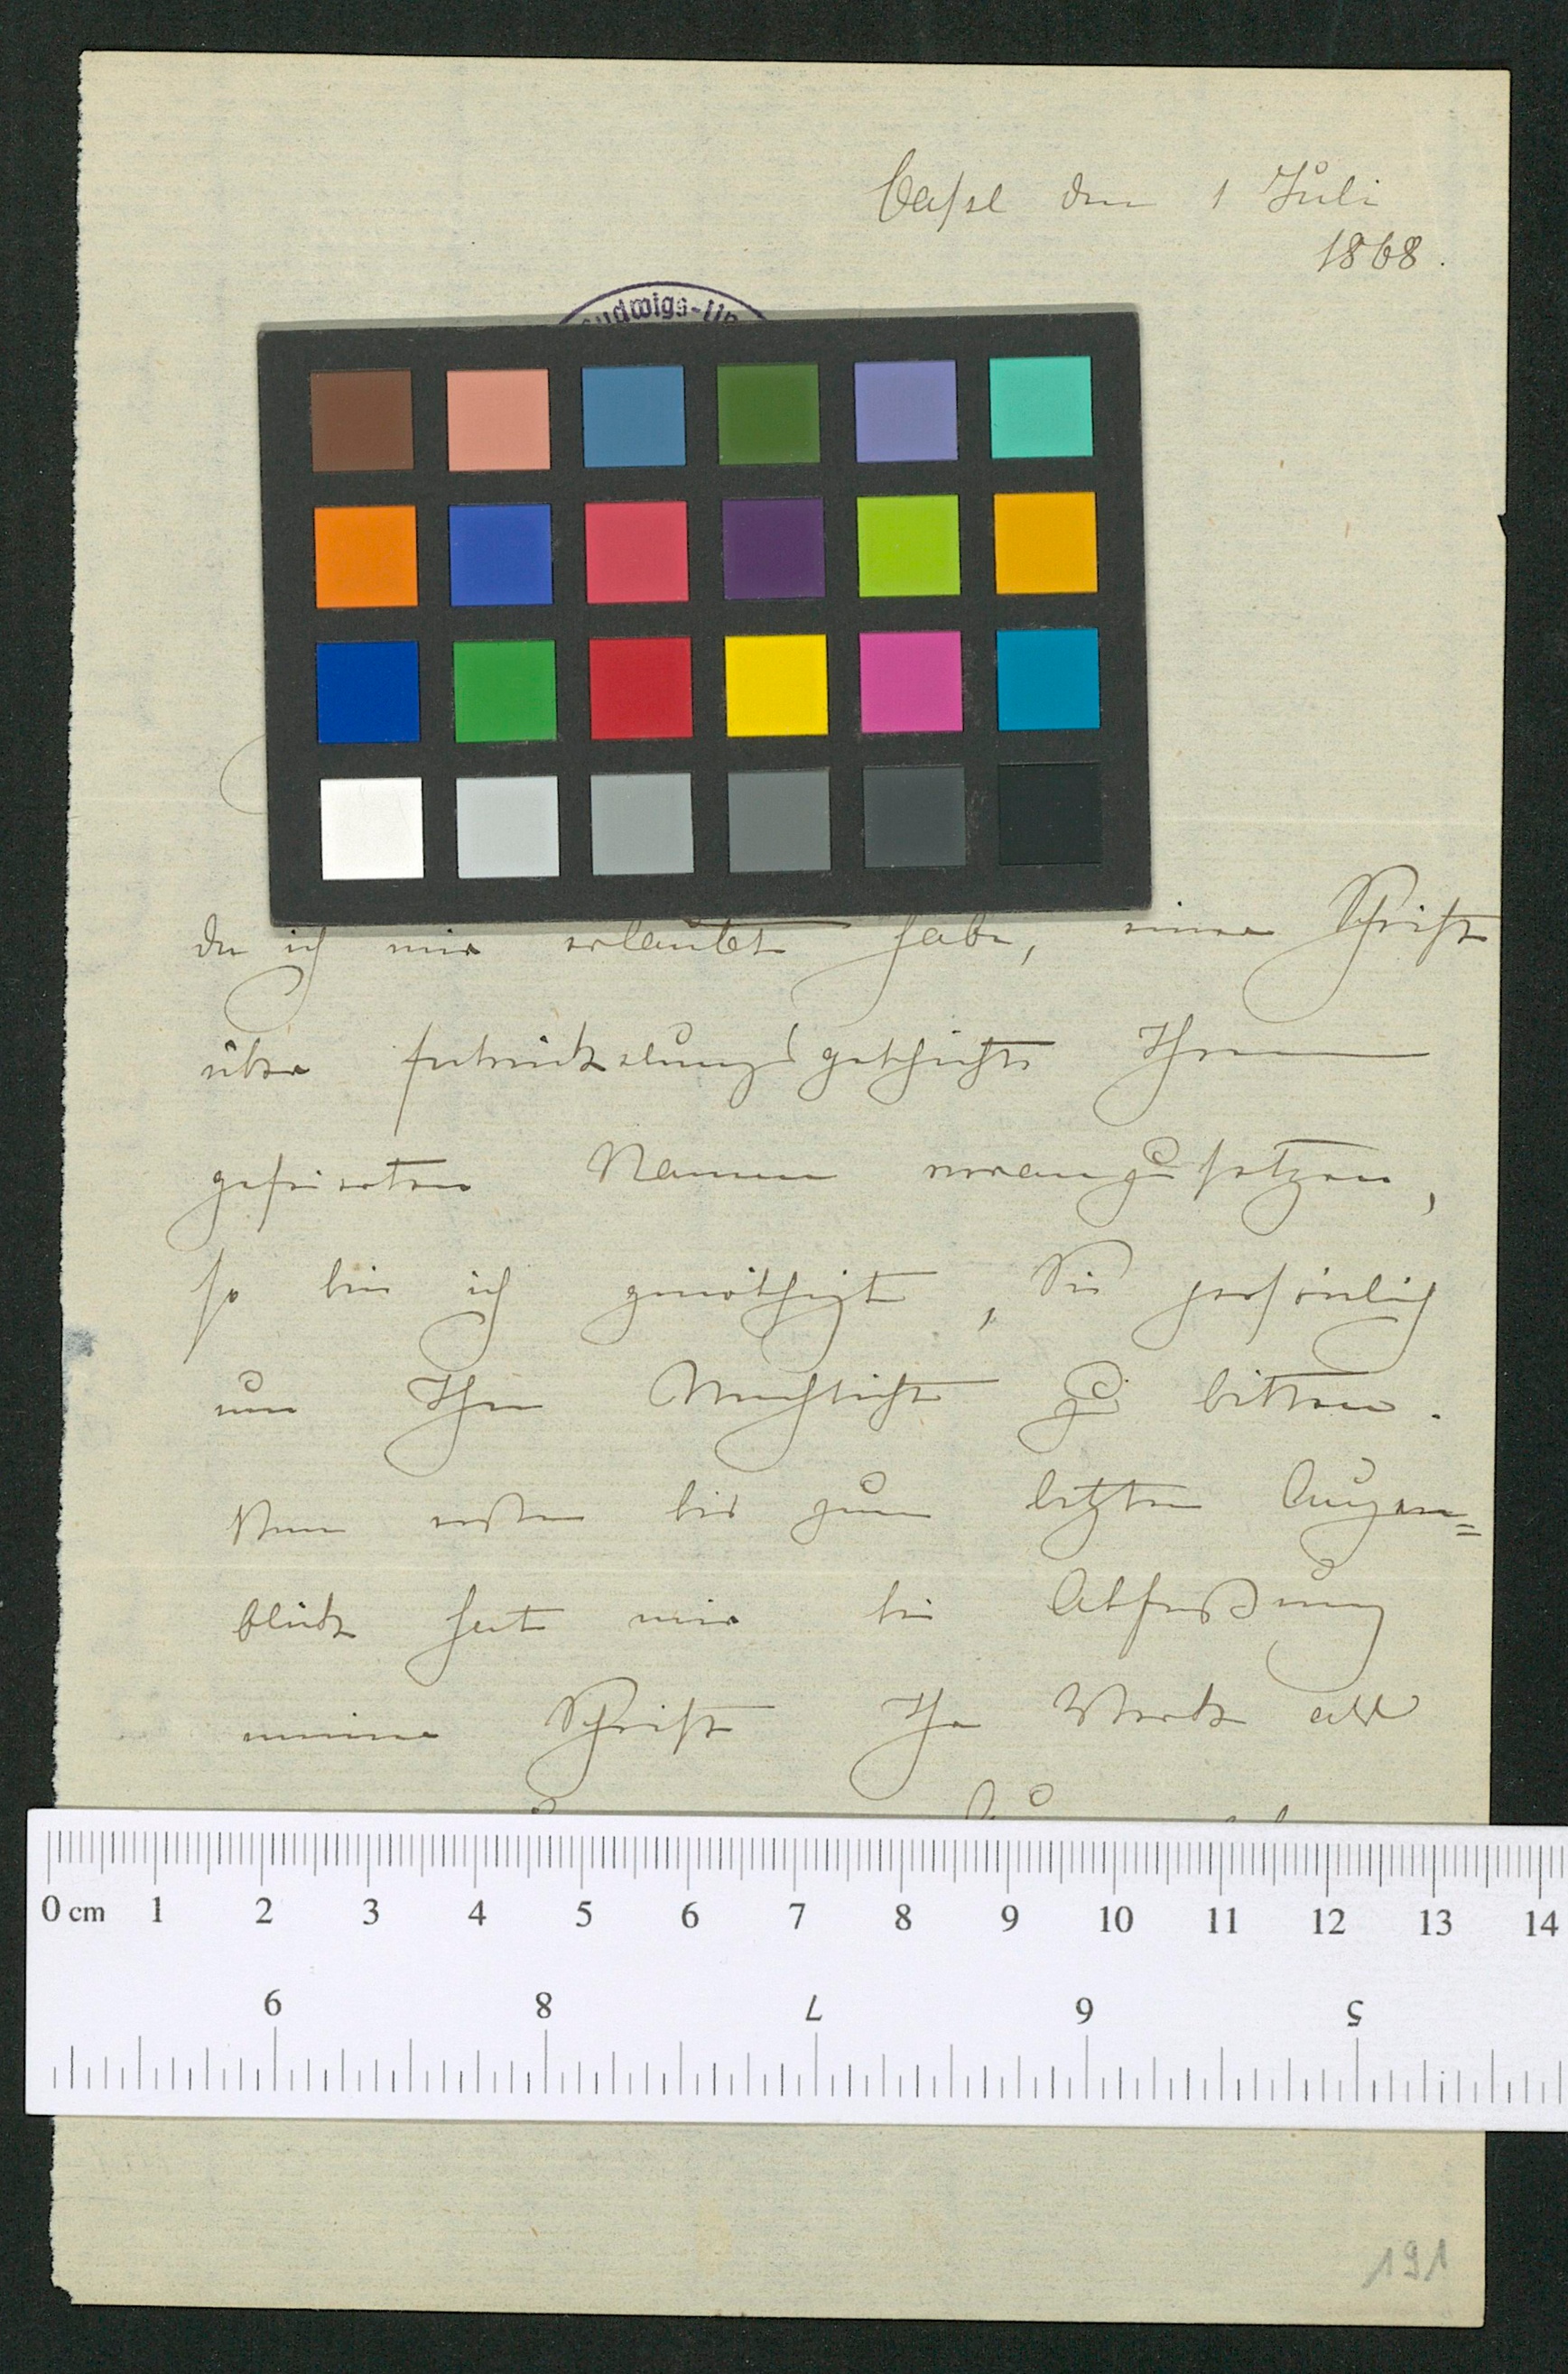 Cassel den 1 Juli
1868.
udwigs-Un
da ich mir erlaubt habe, einer Schrift
über Entwickelungsgeschichte Ihren
gefeierten Namen voranzusetzen,
so bin ich genöthigt, Sie persönlich
um Ihre Nachsicht zu bitten.
Vom ersten bis zum letzten Augen=
blick hat mir bei Abfaßung
meiner Schrift Ihr Werk als
0 cm 1 2 3 4 5 6 7 8 9 10 11 12 13 14
9 8 7 6 5
191